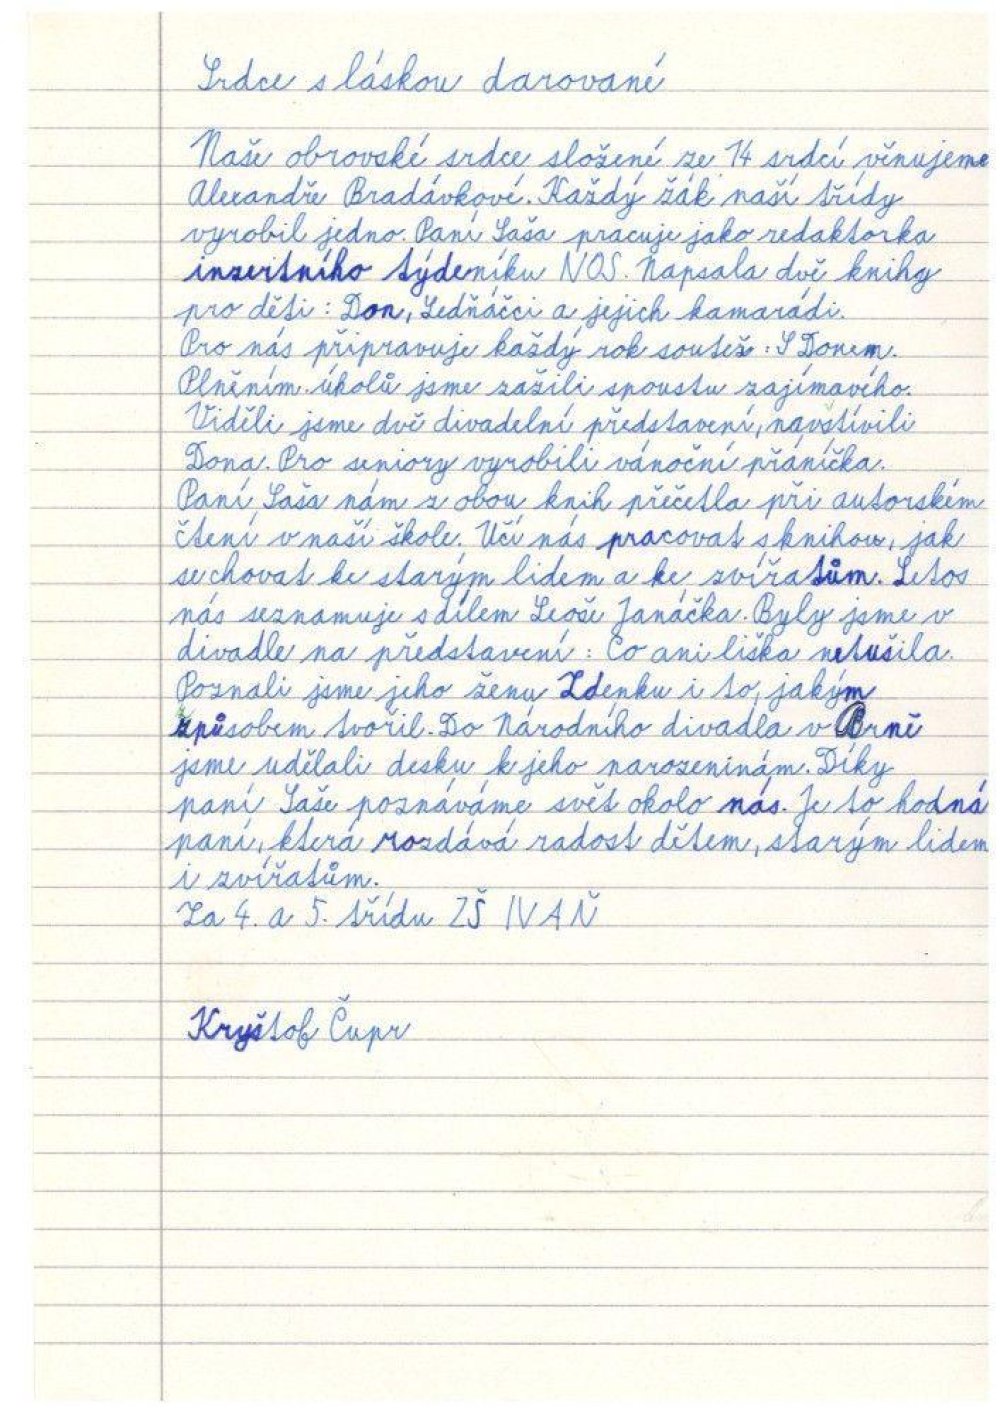 Srdce s láskou darované
Naše obrovské srdce složené ze 14 srdcí věnujeme
Alexandře Bradávkové. Každý žák naší třídy
vyrobil jedno. Paní Saša pracuje jako redaktorka
inzertního týdeníku NOS. Napsala dvě knihy
pro děti: Don, Ledňáčci a jejich kamarádi.
Pro nás připravuje každý rok soutež: S Donem.
Plněním úkolů jsme zažili spoustu zajímavého.
Viděli jsme dvě divadelní představení, navštívili
Dona. Pro seniory vyrobili vánoční přáníčka.
Paní Saša nám z obou knih přečetla při autorském
čtení v naší škole. Učí nás pracovat s knihou, jak
se chovat ke starým lidem a ke zvířatům. Letos
nás seznamuje s dílem Leoše Janáčka. Byly jsme v
divadle na představení: Co ani liška netušila.
Poznali jsme jeho ženu Zdenku i to, jakým
způsobem tvořil. Do Národního divadla v Brně
jsme udělali desku k jeho narozeninám. Díky
paní Saše poznáváme svět okolo nás. Je to hodná
paní, která rozdává radost dětem, starým lidem
i zvířatům.
Za 4. a 5. třídu ZŠ IVAŇ
Kryštof Čupr